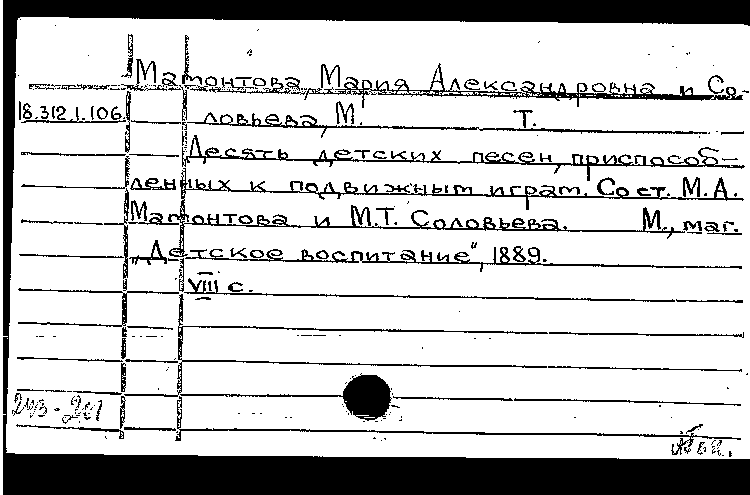 Мамонтова, Мария Александровна и Со-
18.312.1.106. ловьева, М. Т.
Десять детских песен, приспособ-
ленных к подвижным играм. Сост. М.А.
Мамонтова и М.Т. Соловьева. М., маг.
„Детское воспитание", 1889.
VIII с.